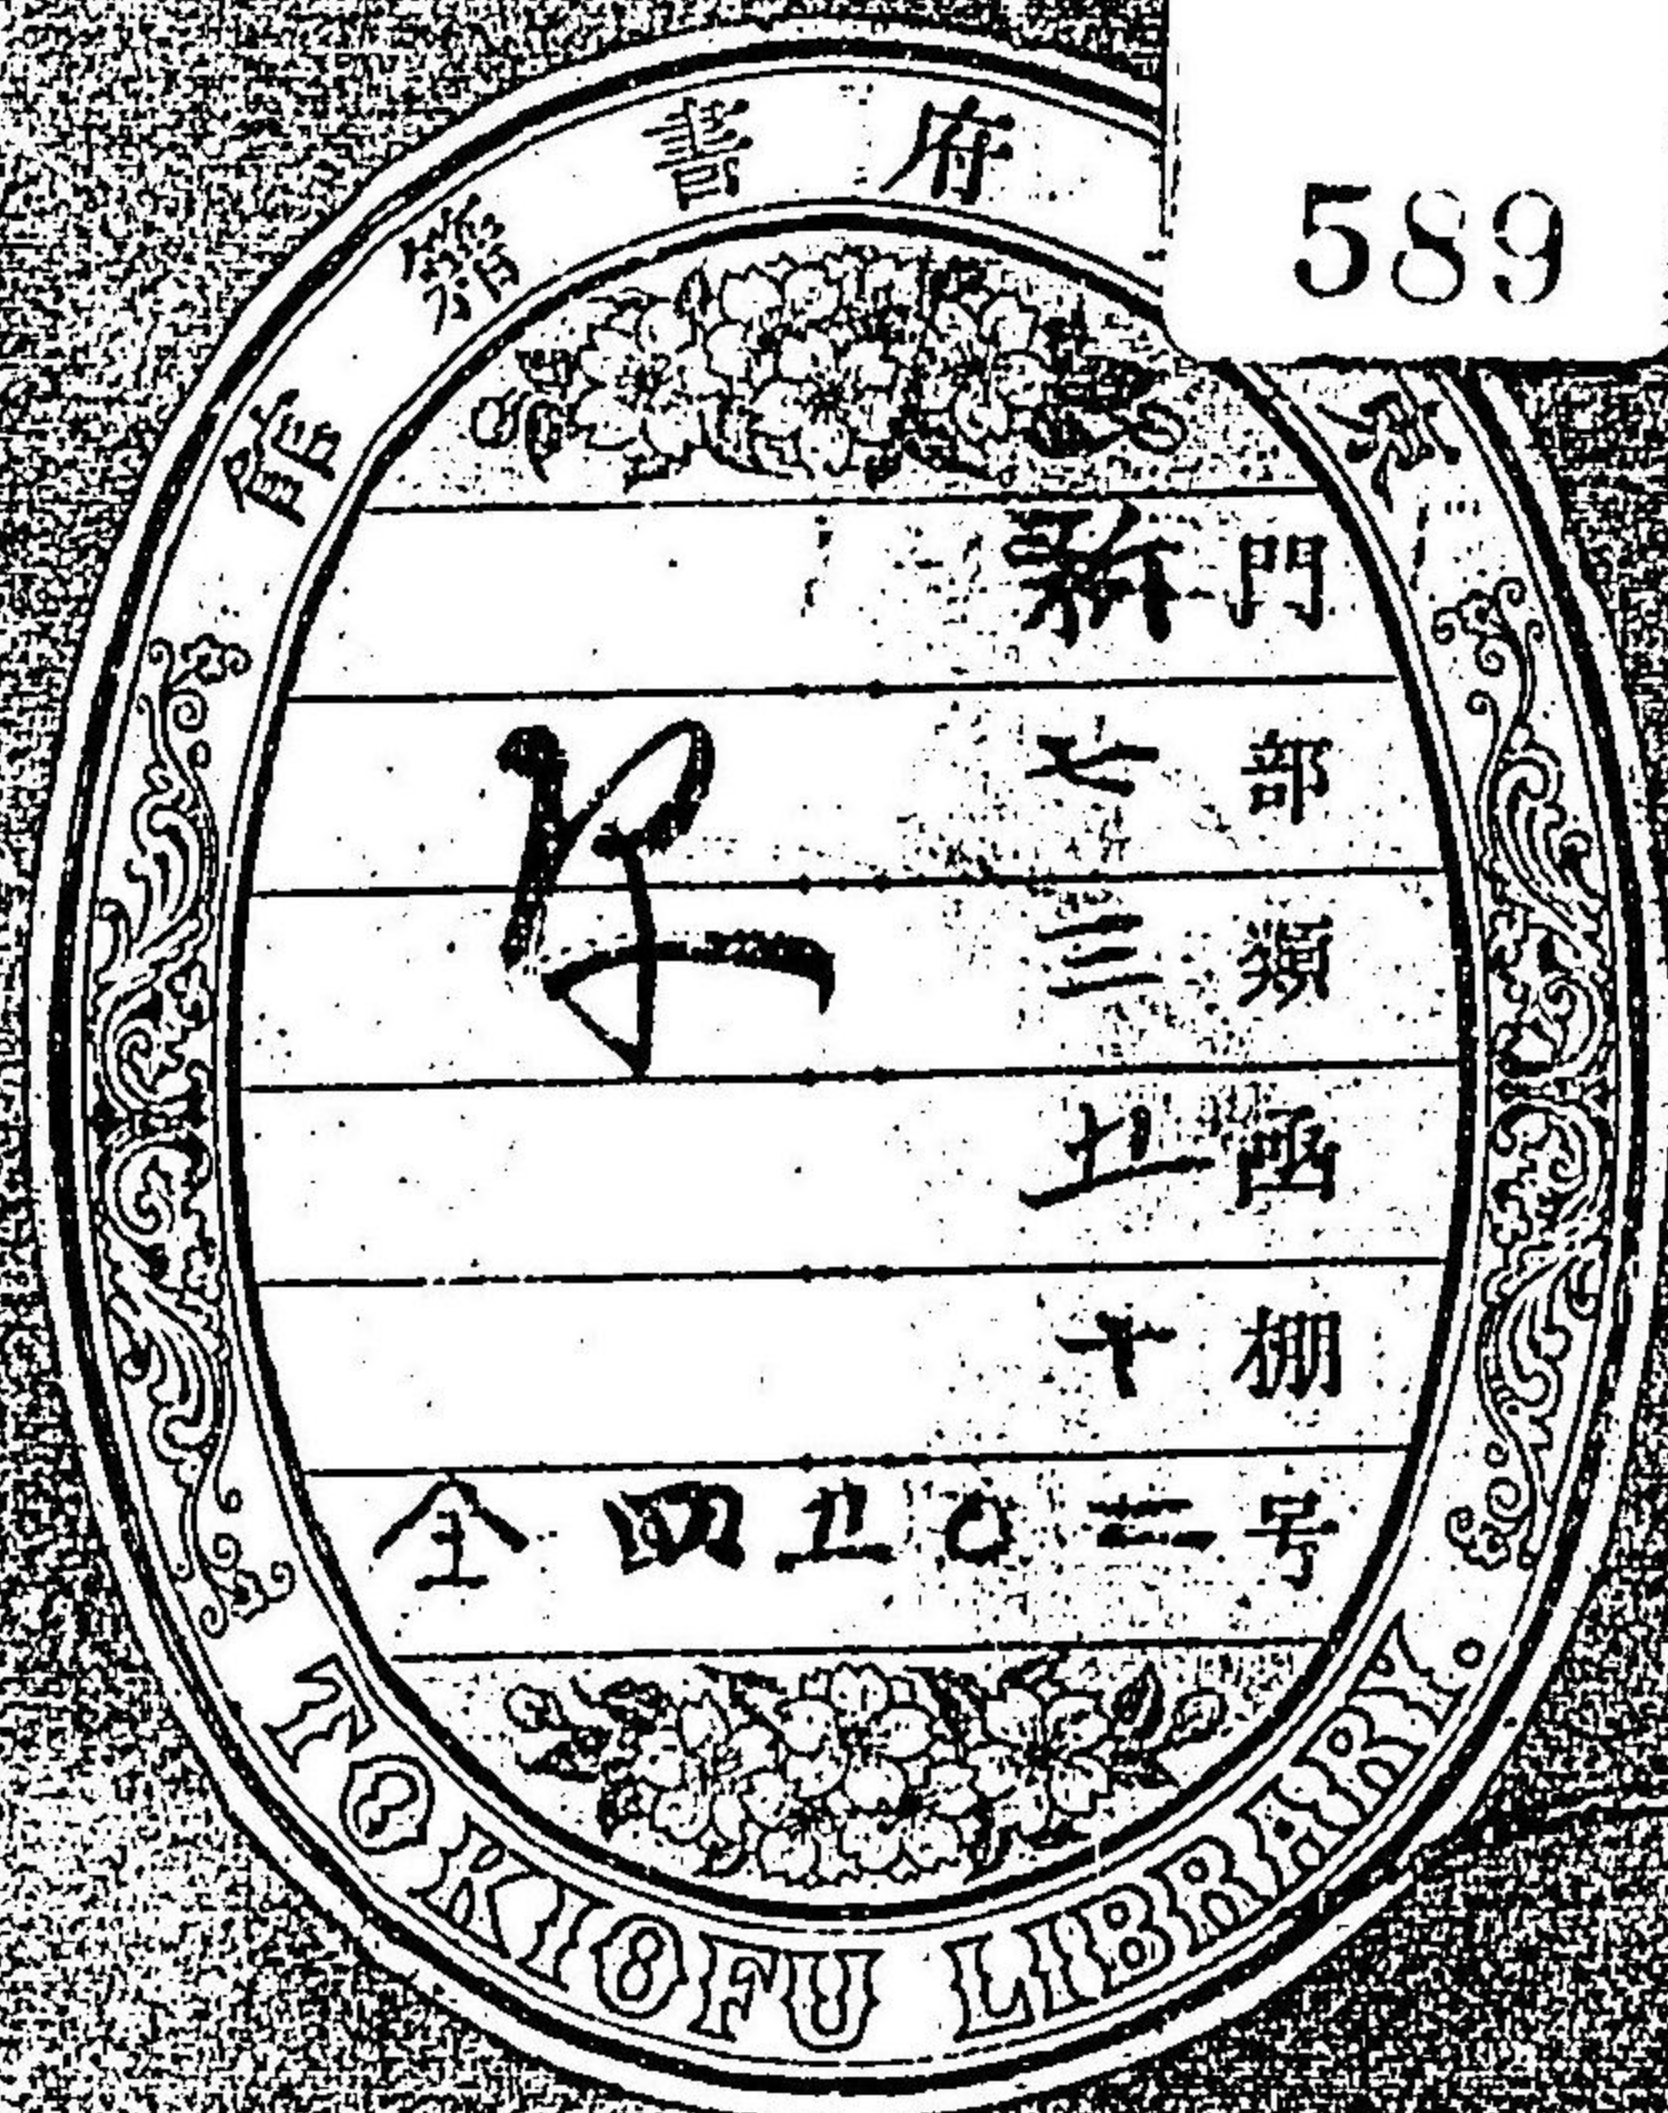 589
京府書籍館
新門
七部
三類
五函
十棚
全四五〇二号
TOKIOFU LIBRARY.